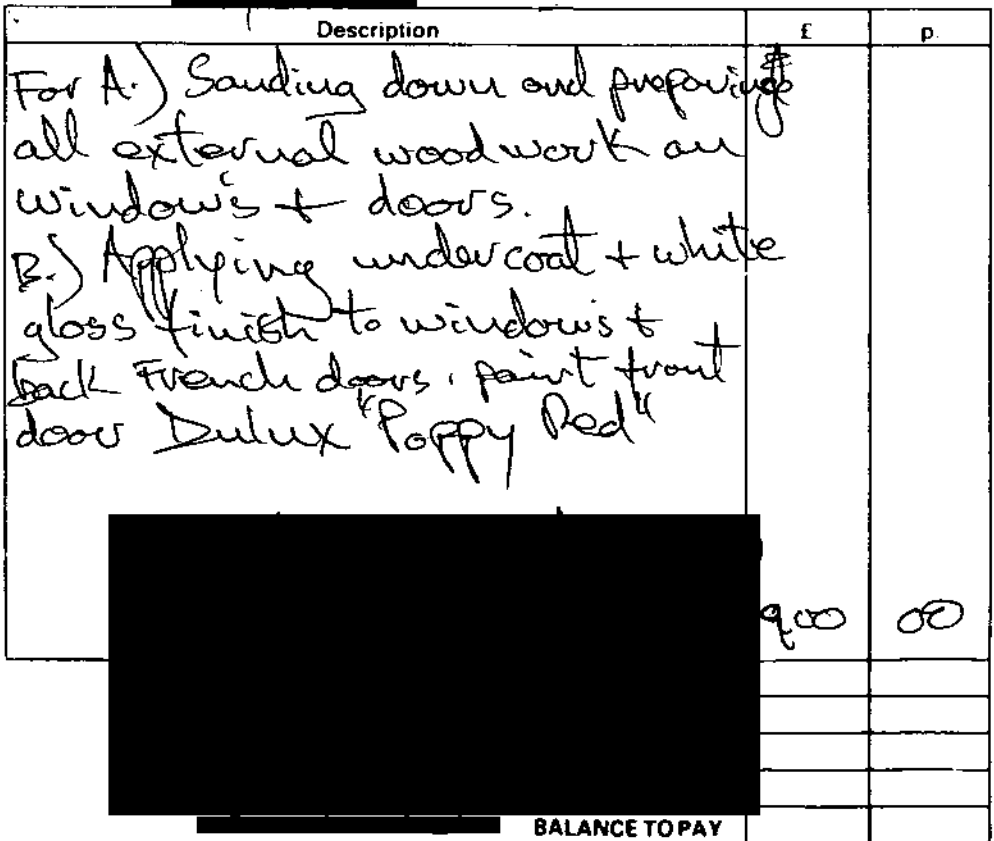 Description £ p.
For A.) Sanding down and preparing
all external woodwork on
window's + doors.
B.) Applying undercoat + white
gloss finish to windows +
back French doors. paint front
door Dulux "Poppy Red"
900 00
BALANCE TO PAY